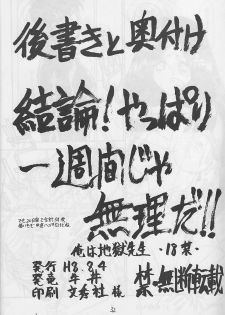 後書きと奥付け
結論!やっぱり
一週間じゃ
無理だ!!
俺は地獄先生・18禁・
発行 H8.8.4
発竜 牛丼
印刷 文秀社様
禁・無断転載
32